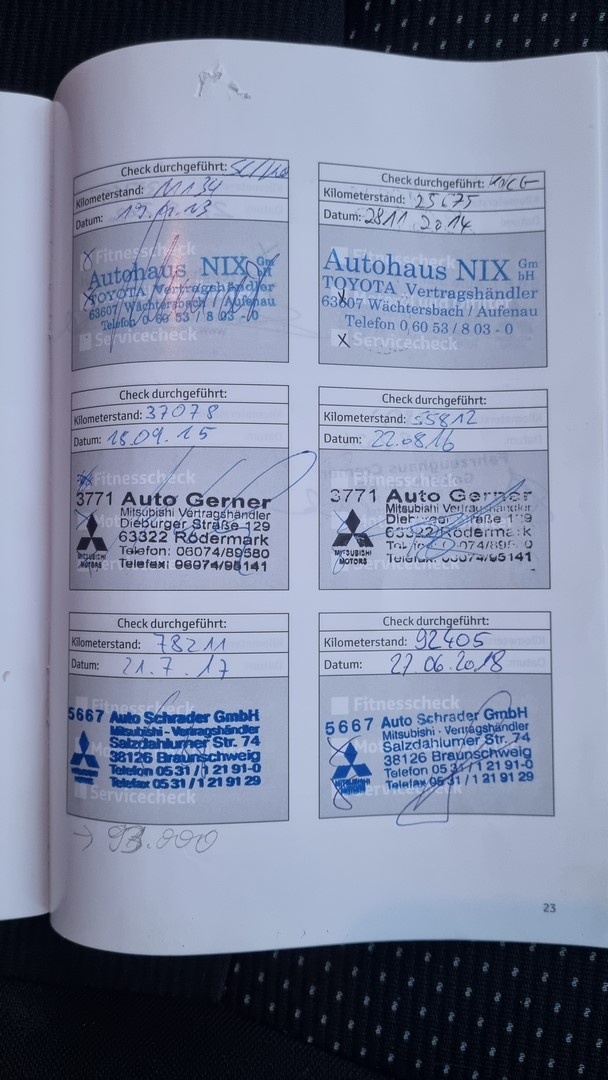 Check durchgeführt:
Kilometerstand: 11134
Datum:
Fitnesscheck
Autohaus NIX Gm
bH
TOYOTA Vertragshändler
63607 Wächtersbach / Aufenau
Telefon 0 60 53 / 8 03 - 0
Servicecheck
Check durchgeführt:
Kilometerstand: 25675
Datum: 2811 2014
Autohaus NIX Gm
bH
TOYOTA Vertragshändler
63607 Wächtersbach / Aufenau
Telefon 0 60 53 / 8 03 - 0
Servicecheck
Check durchgeführt:
Kilometerstand: 37078
Datum: 18.09.15
Fitnesscheck
3771 Auto Gerner
Mitsubishi Vertragshändler
Dieburger Straße 129
63322 Rödermark
Telefon: 06074/89580
Telefax: 06074/95141
MITSUBISHI
MOTORS
Check durchgeführt:
Kilometerstand: 55812
Datum: 22.08.16
Fitnesscheck
3771 Auto Gerner
Mitsubishi Vertragshändler
63322 Rödermark
MITSUBISHI
MOTORS
Check durchgeführt:
Kilometerstand: 78211
Datum: 21.7.17
Fitnesscheck
5667 Auto Schrader GmbH
Mitsubishi - Vertragshändler
Salzdahlumer Str. 74
38126 Braunschweig
Telefon 05 31 / 1 21 91-0
Telefax 05 31 / 1 21 91 29
Servicecheck
→ 93.000
Check durchgeführt:
Kilometerstand: 92405
Datum: 27.06.2018
Fitnesscheck
5667 Auto Schrader GmbH
Mitsubishi - Vertragshändler
Salzdahlumer Str. 74
38126 Braunschweig
Telefon 05 31 / 1 21 91-0
Telefax 05 31 / 1 21 91 29
Servicecheck
23